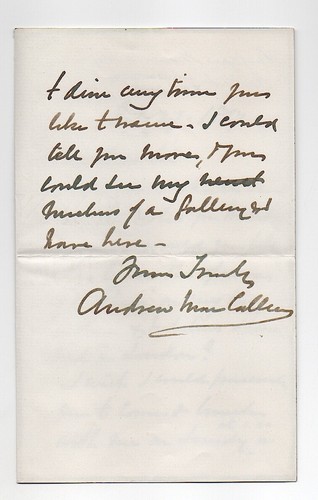 & dine any time you
like to name – I could
tell you more, & you
could see my
nucleus of a Gallery wd
have here –
Yours Truly
Andrew MacCallum